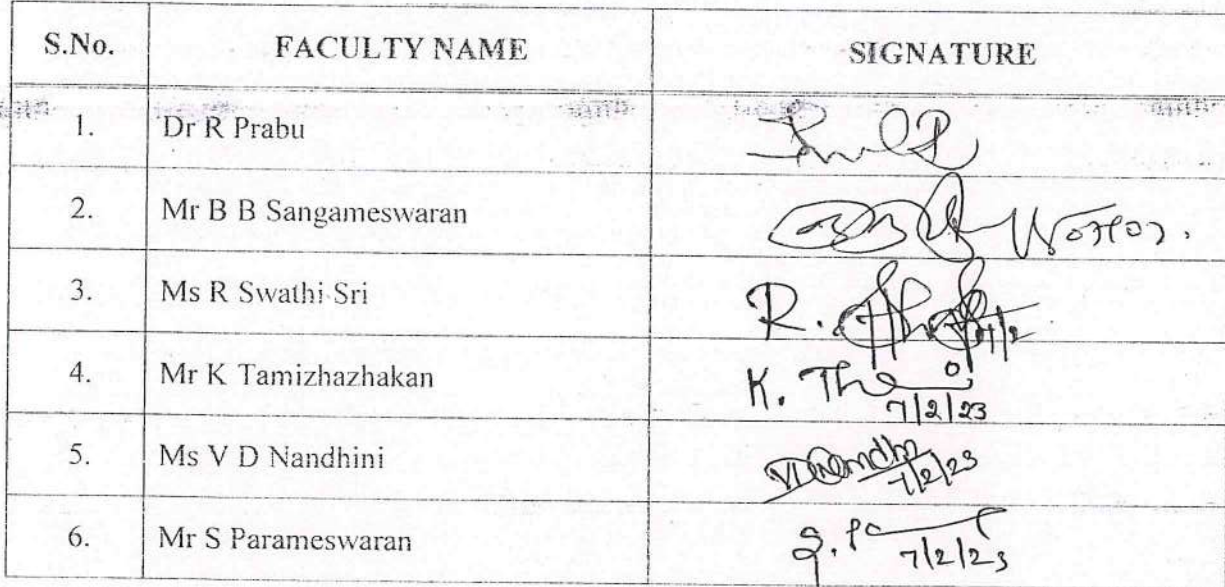 S.No. FACULTY NAME SIGNATURE
1. Dr R Prabu
2. Mr B B Sangameswaran
3. Ms R Swathi Sri R.
4. Mr K Tamizhazhakan K.
7/2/23
5. Ms V D Nandhini
7/2/23
6. Mr S Parameswaran S.
7/2/23